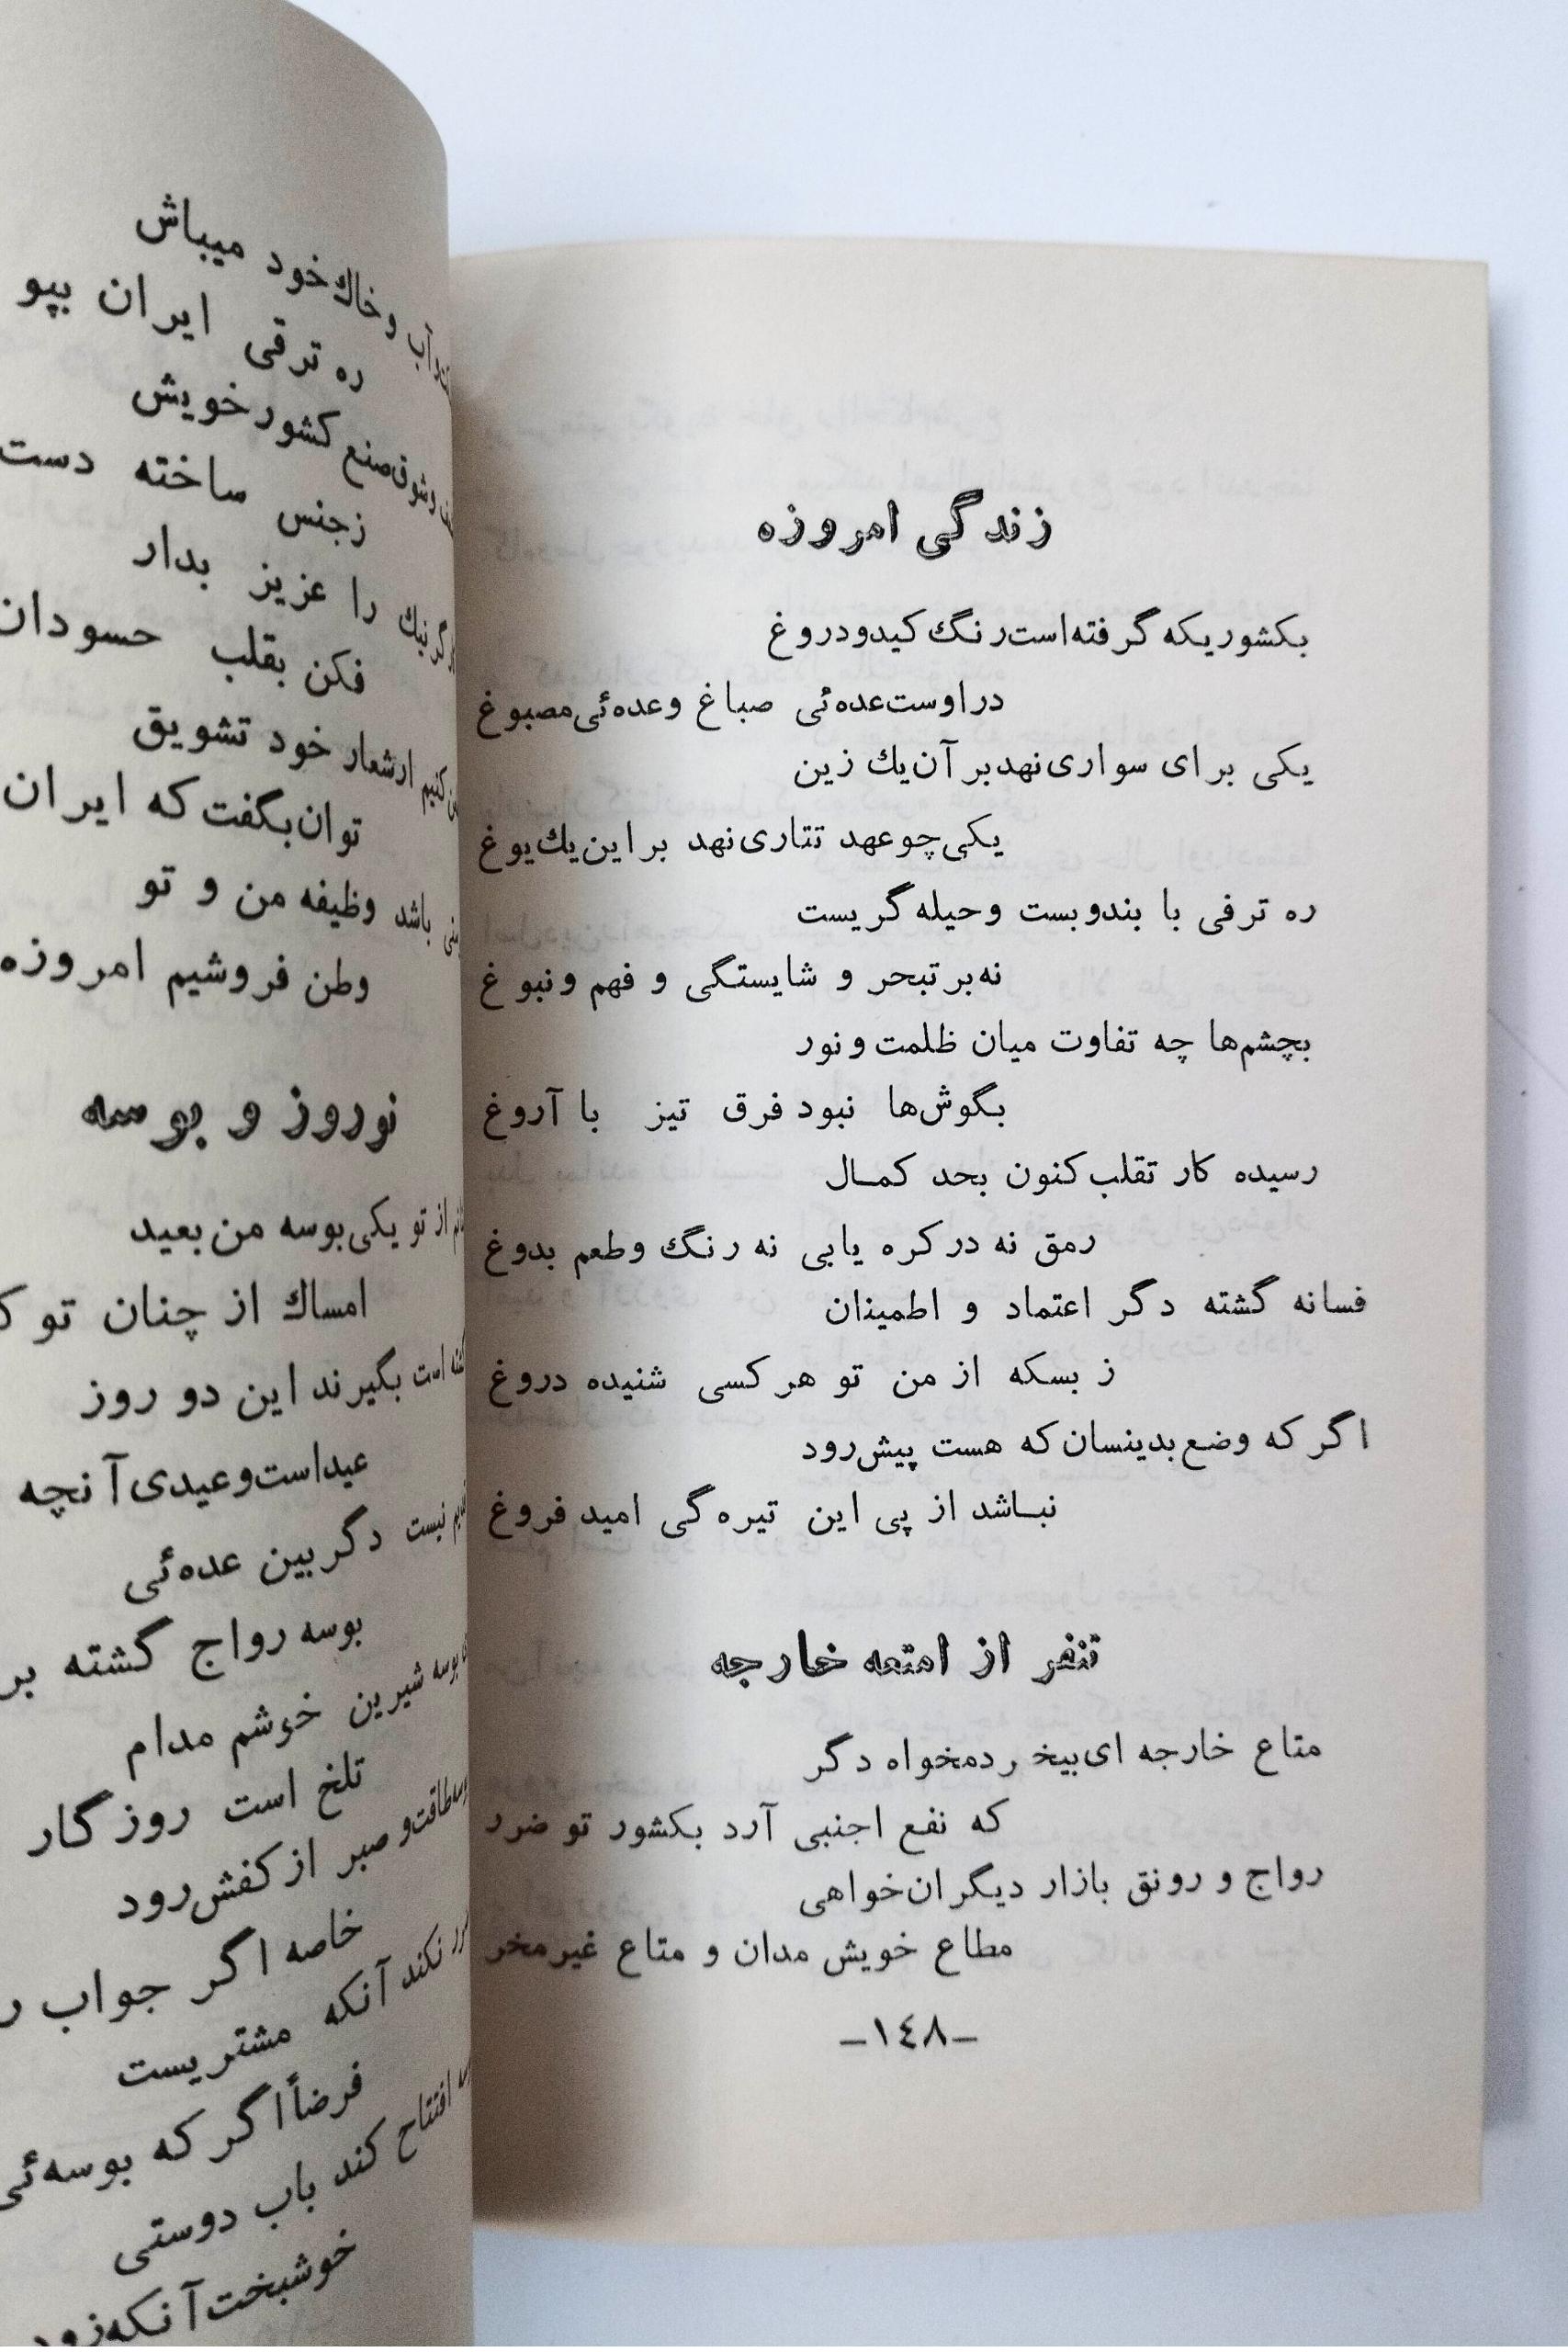 زندگی امروزه
بکشوریکه گرفته است رنگ کید و دروغ
در اوست عده‌ئی صباغ و عده‌ئی مصبوغ
یکی برای سواری نهد بر آن یك زین
یکی چو عهد تتاری نهد بر این یك یوغ
ره ترفی با بند و بست و حیله گریست
نه بر تبحر و شایستگی و فهم و نبوغ
بچشم‌ها چه تفاوت میان ظلمت و نور
بگوش‌ها نبود فرق تیز با آروغ
رسیده کار تقلب کنون بحد کمال
رمق نه در کره یابی نه رنگ و طعم بدوغ
فسانه گشته دگر اعتماد و اطمینان
ز بسکه از من تو هر کسی شنیده دروغ
اگر که وضع بدینسان که هست پیش رود
نباشد از پی این تیره گی امید فروغ
تنفر از امتعه خارجه
متاع خارجه ای بیخردمخواه دگر
که نفع اجنبی آرد بکشور تو ضرر
رواج و رونق بازار دیگران خواهی
مطاع خویش مدان و متاع غیر مخر
-١٤٨-
آب و خاك خود میباش
ره ترقی ایران بپو
وشوق صنع کشور خویش
زجنس ساخته دست
گر نیك را عزیز بدار
فکن بقلب حسودان
کنیم ارشعار خود تشویق
توان بگفت که ایران
باشد وظیفه من و تو
وطن فروشیم امروزه
نوروز و بوسه
از تو یکی بوسه من بعید
امساك از چنان تو
است بگیرند این دو روز
عید است و عیدی آنچه
نیست دگر بین عده‌ئی
بوسه رواج گشته بر
بوسه شیرین خوشم مدام
تلخ است روزگار
طاقت و صبر از کفش رود
خاصه اگر جواب
نکند آنکه مشتریست
فرضاً اگر که بوسه‌ئی
افتتاح کند باب دوستی
خوشبخت آنکه زود